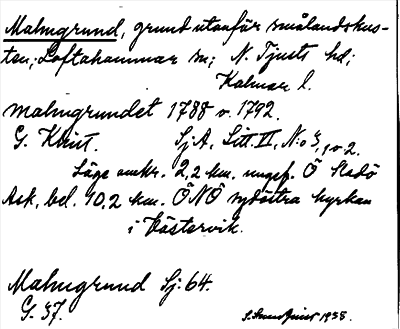 Malmgrund, grund utanför smålandskus-
ten; Loftahammar sn; N. Tjusts hd;
Kalmar l.
Malmgrundet 1788 o. 1792.
G. Klint. Sj.A, Litt. II, N:o 3, 1 o 2.
Läge omkr. 2,2 km. ungef. Ö Sladö
Ask, bel. 10,2 km. ÖNÖ sydöstra kyrkan
i Västervik.
Malmgrund Sj: 64.
G. 37.
1938.